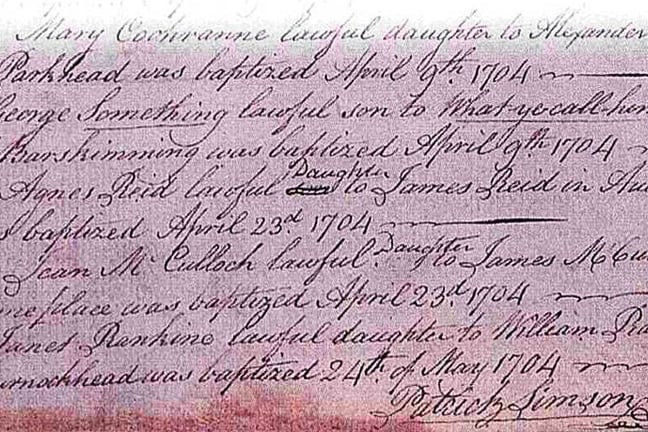 Mary Cochranne lawful daughter to Alexander
Parkhead was baptized April 9th 1704
George Something lawful son to What-ye-call-him
Barskimming was baptized April 9th 1704
Agnes Reid lawful Daughter to James Reid in
baptized April 23d 1704
Jean Mc Culloch lawful Daughter to James
place was baptized April 23d 1704
Janet Rankine lawful daughter to William
was baptized 24th of May 1704
Patrick Simson